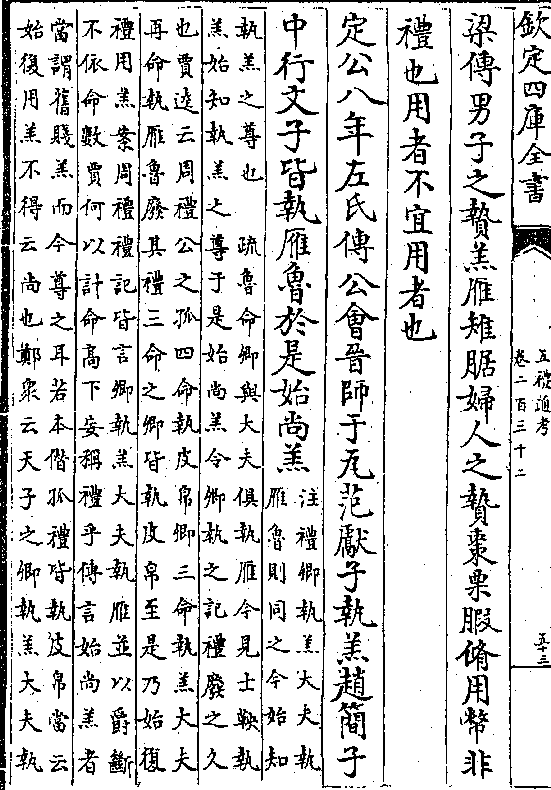 欽定四庫全書
五禮通考
卷二百三十二
五十三
梁傳男子之贄羔雁雉腒婦人之贄棗栗腶脩用幣非
禮也用者不宜用者也
定公八年左氏傳公會晉師于瓦范獻子執羔趙簡子
中行文子皆執雁魯於是始尚羔
注禮卿執羔大夫執
雁魯則同之今始知
執羔之尊也 疏魯命卿與大夫俱執雁今見士鞅執
羔始知執羔之尊于是始尚羔令卿執之記禮廢之久
也賈逵云周禮公之孤四命執皮帛卿三命執羔大夫
再命執雁魯廢其禮三命之卿皆執皮帛至是乃始復
禮用羔案周禮禮記皆言卿執羔大夫執雁並以爵斷
不依命數賈何以計命高下妄稱禮乎傳言始尚羔者
當謂舊賤羔而今尊之耳若本僭孤禮皆執皮帛當云
始復用羔不得云尚也鄭衆云天子之卿執羔大夫執